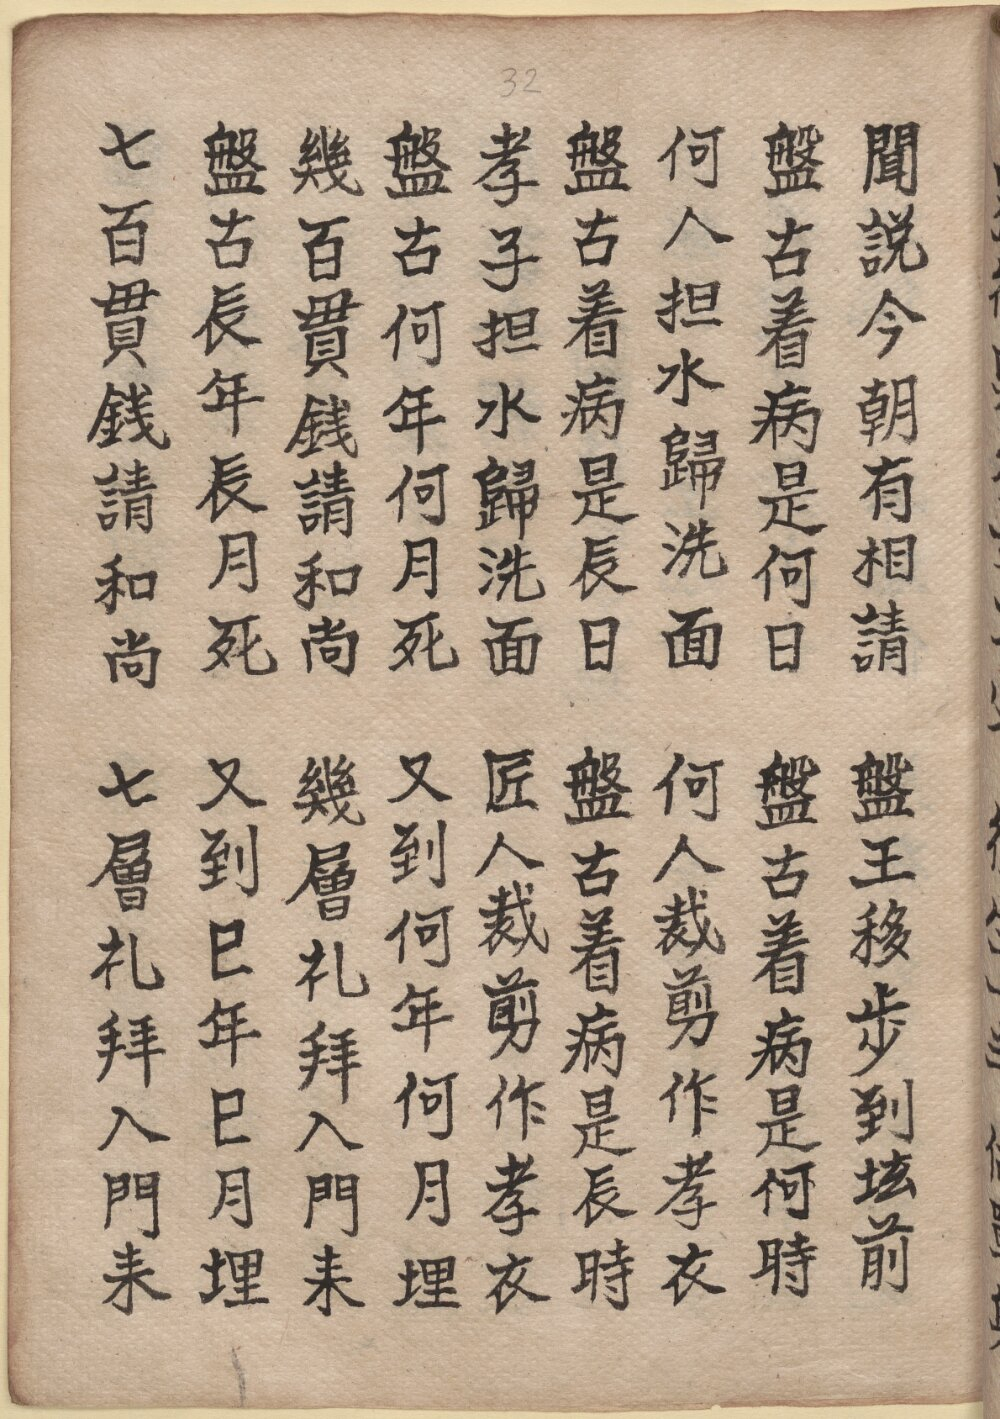 32
聞説今朝有相請 盤王移步到坛前
盤古着病是何日 盤古着病是何時
何人担水歸洗面 何人裁剪作孝衣
盤古着病是長日 盤古着病是辰時
孝子担水歸洗面 匠人裁剪作孝衣
盤古何年何月死 又到何年何月埋
幾百貫錢請和尚 幾層礼拜入門来
盤古辰年辰月死 又到巳年巳月埋
七百貫錢請和尚 七層礼拜入門来